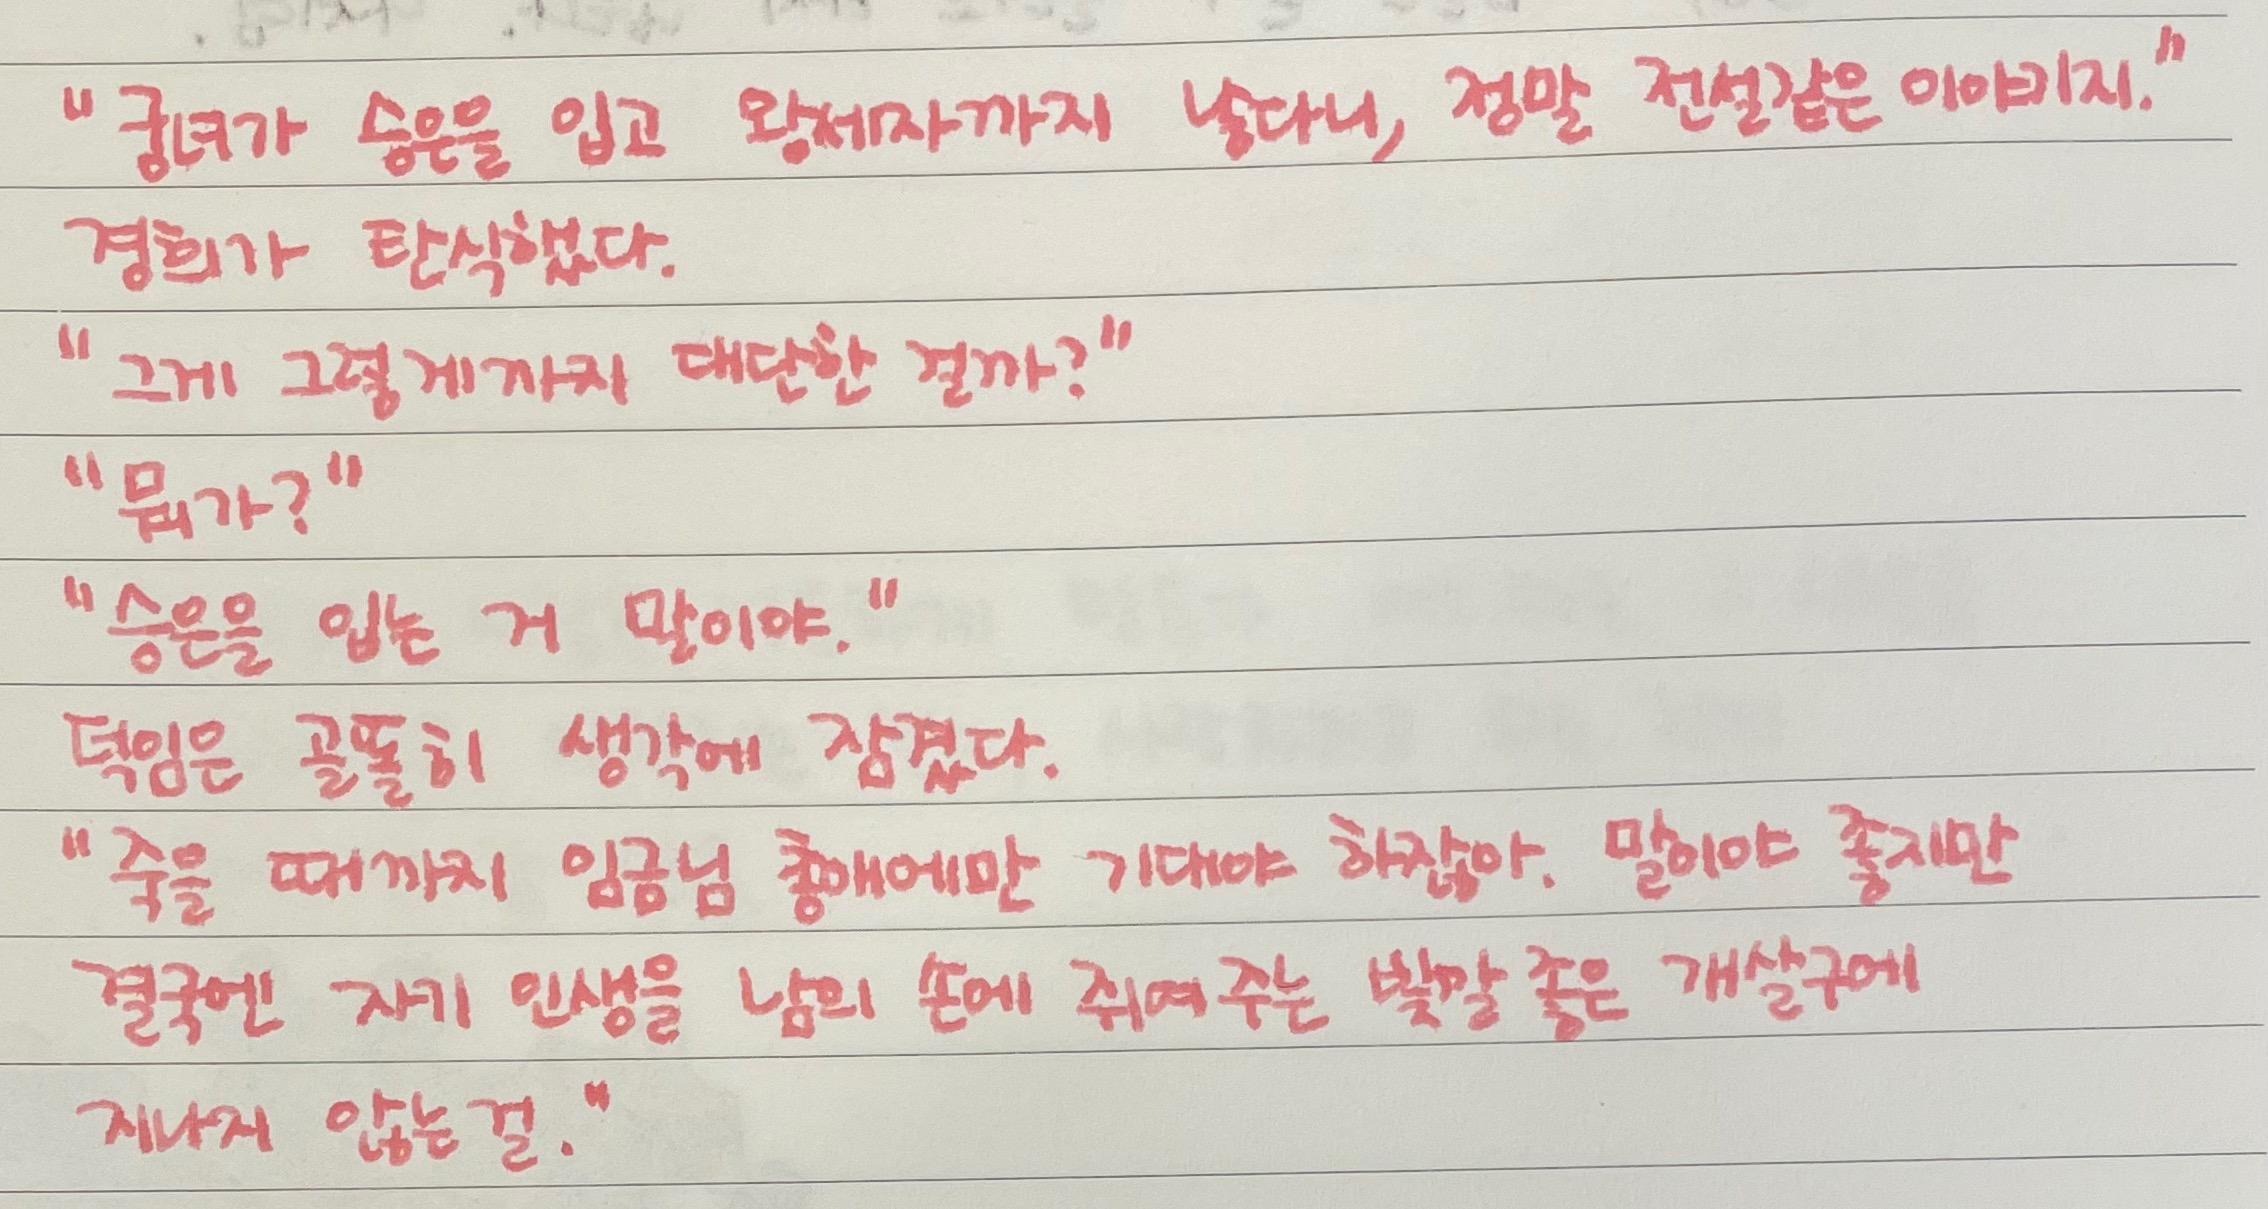 "궁녀가 승은을 입고 왕세자까지 낳다니, 정말 전설같은 이야기지."
경희가 탄식했다.
"그게 그렇게까지 대단한 걸까?"
"뭐가?"
"승은을 입는 거 말이야."
덕임은 골똘히 생각에 잠겼다.
"죽을 때까지 임금님 총애에만 기대야 하잖아. 말이야 좋지만
결국엔 자기 인생을 남의 손에 쥐여주는 빛깔 좋은 개살구에
지나지 않는걸."